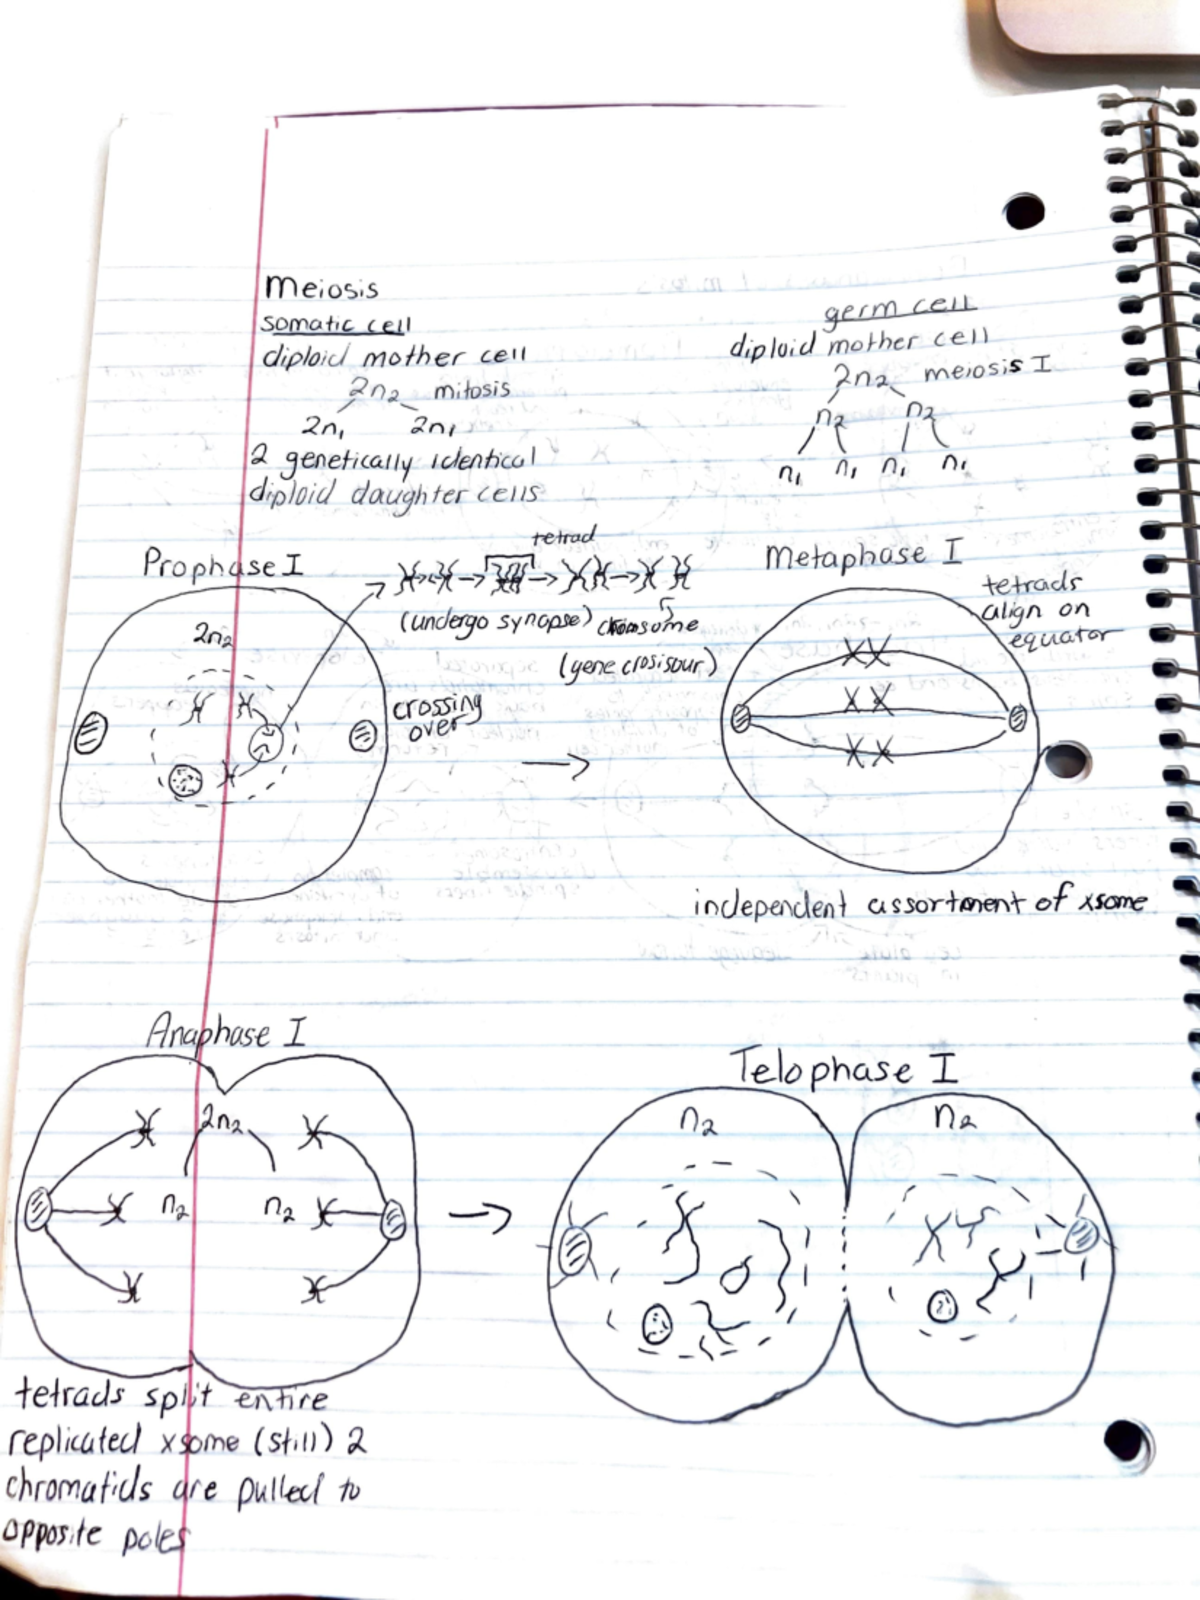 Meiosis
somatic cell
diploid mother cell
2n₂ mitosis
2n₁ 2n₁
2 genetically identical
diploid daughter cells
germ cell
diploid mother cell
2n₂ meiosis I
n₂ n₂
n₁ n₁ n₁ n₁
Prophase I
tetrad
(undergo synapse)
(gene crosisour)
2n₂
crossing
over
Metaphase I
tetrads
align on
equator
independent assortment of xsome
Anaphase I
2n₂
n₂ n₂
tetrads split entire
replicated xsome (still) 2
chromatids are pulled to
opposite poles
Telophase I
n₂ n₂